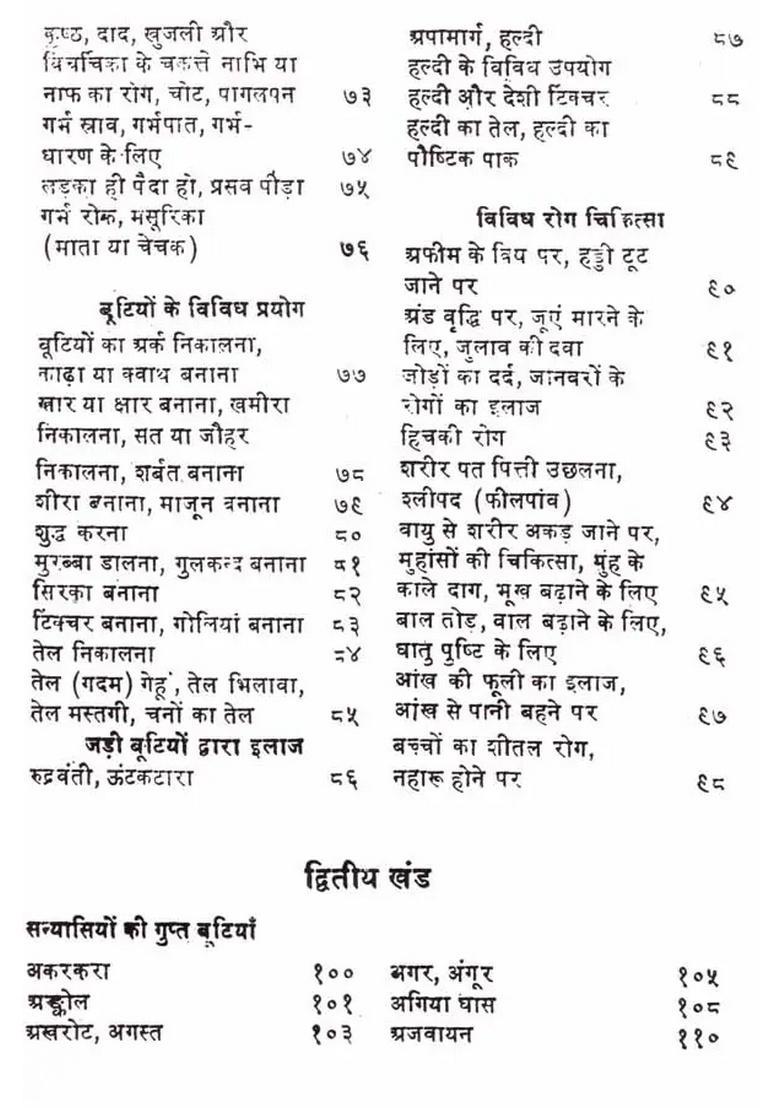 कुष्ठ, दाद, खुजली और
विचर्चिका के चकत्ते नाभि या
नाफ का रोग, चोट, पागलपन ७३
गर्भ स्राव, गर्भपात, गर्भ-
धारण के लिए ७४
लड़का ही पैदा हो, प्रसव पीड़ा ७५
गर्भ रोक, मसूरिका
(माता या चेचक) ७६
बूटियों के विविध प्रयोग
बूटियों का अर्क निकालना,
काढ़ा या क्वाथ बनाना ७७
खार या क्षार बनाना, खमीरा
निकालना, सत या जौहर
निकालना, शर्बत बनाना ७८
शीरा बनाना, माजून बनाना ७९
शुद्ध करना ८०
मुरब्बा डालना, गुलकन्द बनाना ८१
सिरका बनाना ८२
टिंक्चर बनाना, गोलियां बनाना ८३
तेल निकालना ८४
तेल (गदम) गेहूं, तेल भिलावा,
तेल मस्तगी, चनों का तेल ८५
जड़ी बूटियों द्वारा इलाज
रुद्रवंती, ऊंटकटारा ८६
अपामार्ग, हल्दी ८७
हल्दी के विविध उपयोग
हल्दी और देशी टिंक्चर ८८
हल्दी का तेल, हल्दी का
पौष्टिक पाक ८९
विविध रोग चिकित्सा
अफीम के विष पर, हड्डी टूट
जाने पर ९०
अंड वृद्धि पर, जूएं मारने के
लिए, जुलाब की दवा ९१
जोड़ों का दर्द, जानवरों के
रोगों का इलाज ९२
हिचकी रोग ९३
शरीर पत पित्ती उछलना,
श्लीपद (फीलपांव) ९४
वायु से शरीर अकड़ जाने पर,
मुहांसों की चिकित्सा, मुंह के
काले दाग, भूख बढ़ाने के लिए ९५
बाल तोड़, बाल बढ़ाने के लिए,
धातु पुष्टि के लिए ९६
आंख की फूली का इलाज,
आंख से पानी बहने पर ९७
बच्चों का शीतल रोग,
नहारू होने पर ९८
द्वितीय खंड
सन्यासियों की गुप्त बूटियाँ
अकरकरा १००
अङ्कोल १०१
अखरोट, अगस्त १०३
अगर, अंगूर १०५
अगिया घास १०८
अजवायन ११०